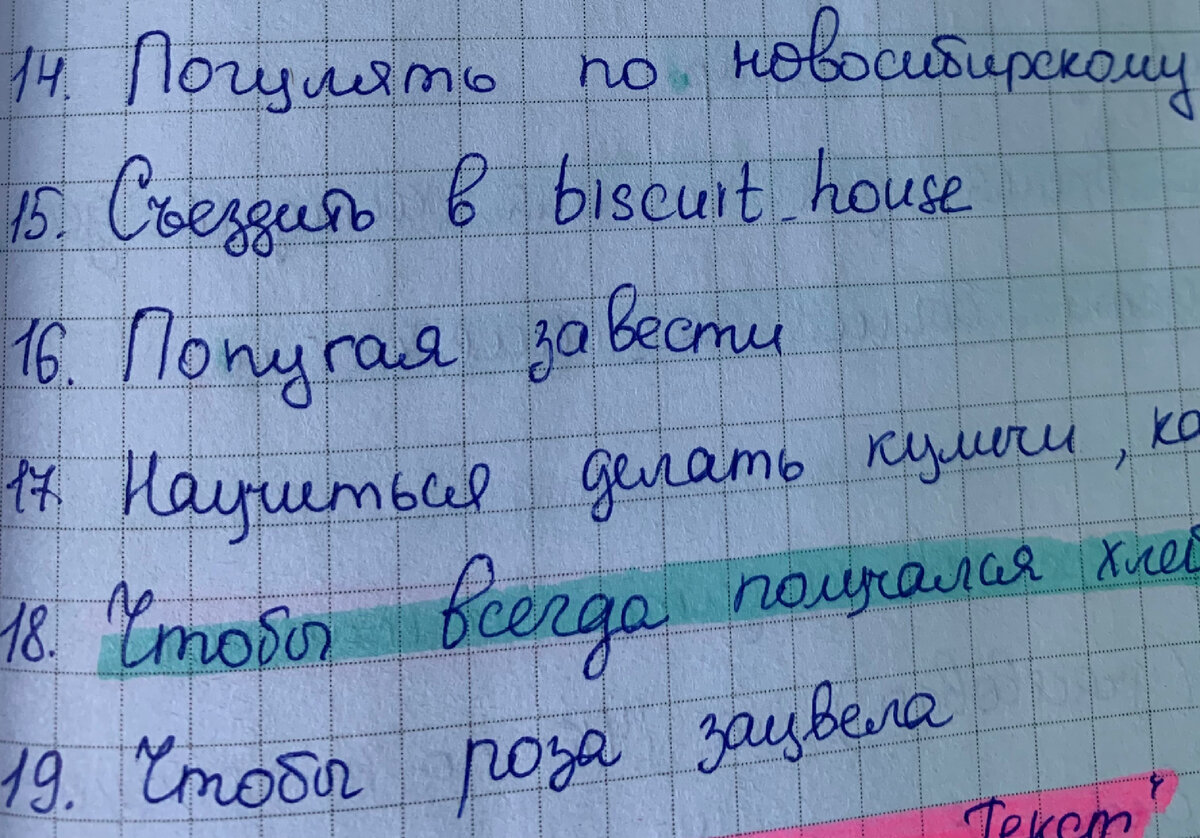 14. Погулять по новосибирскому
15. Съездить в biscuit_house
16. Попугая завести
17. Научиться делать куличи, ка
18. Чтобы всегда получался хлеб
19. Чтобы роза зацвела
Текст"